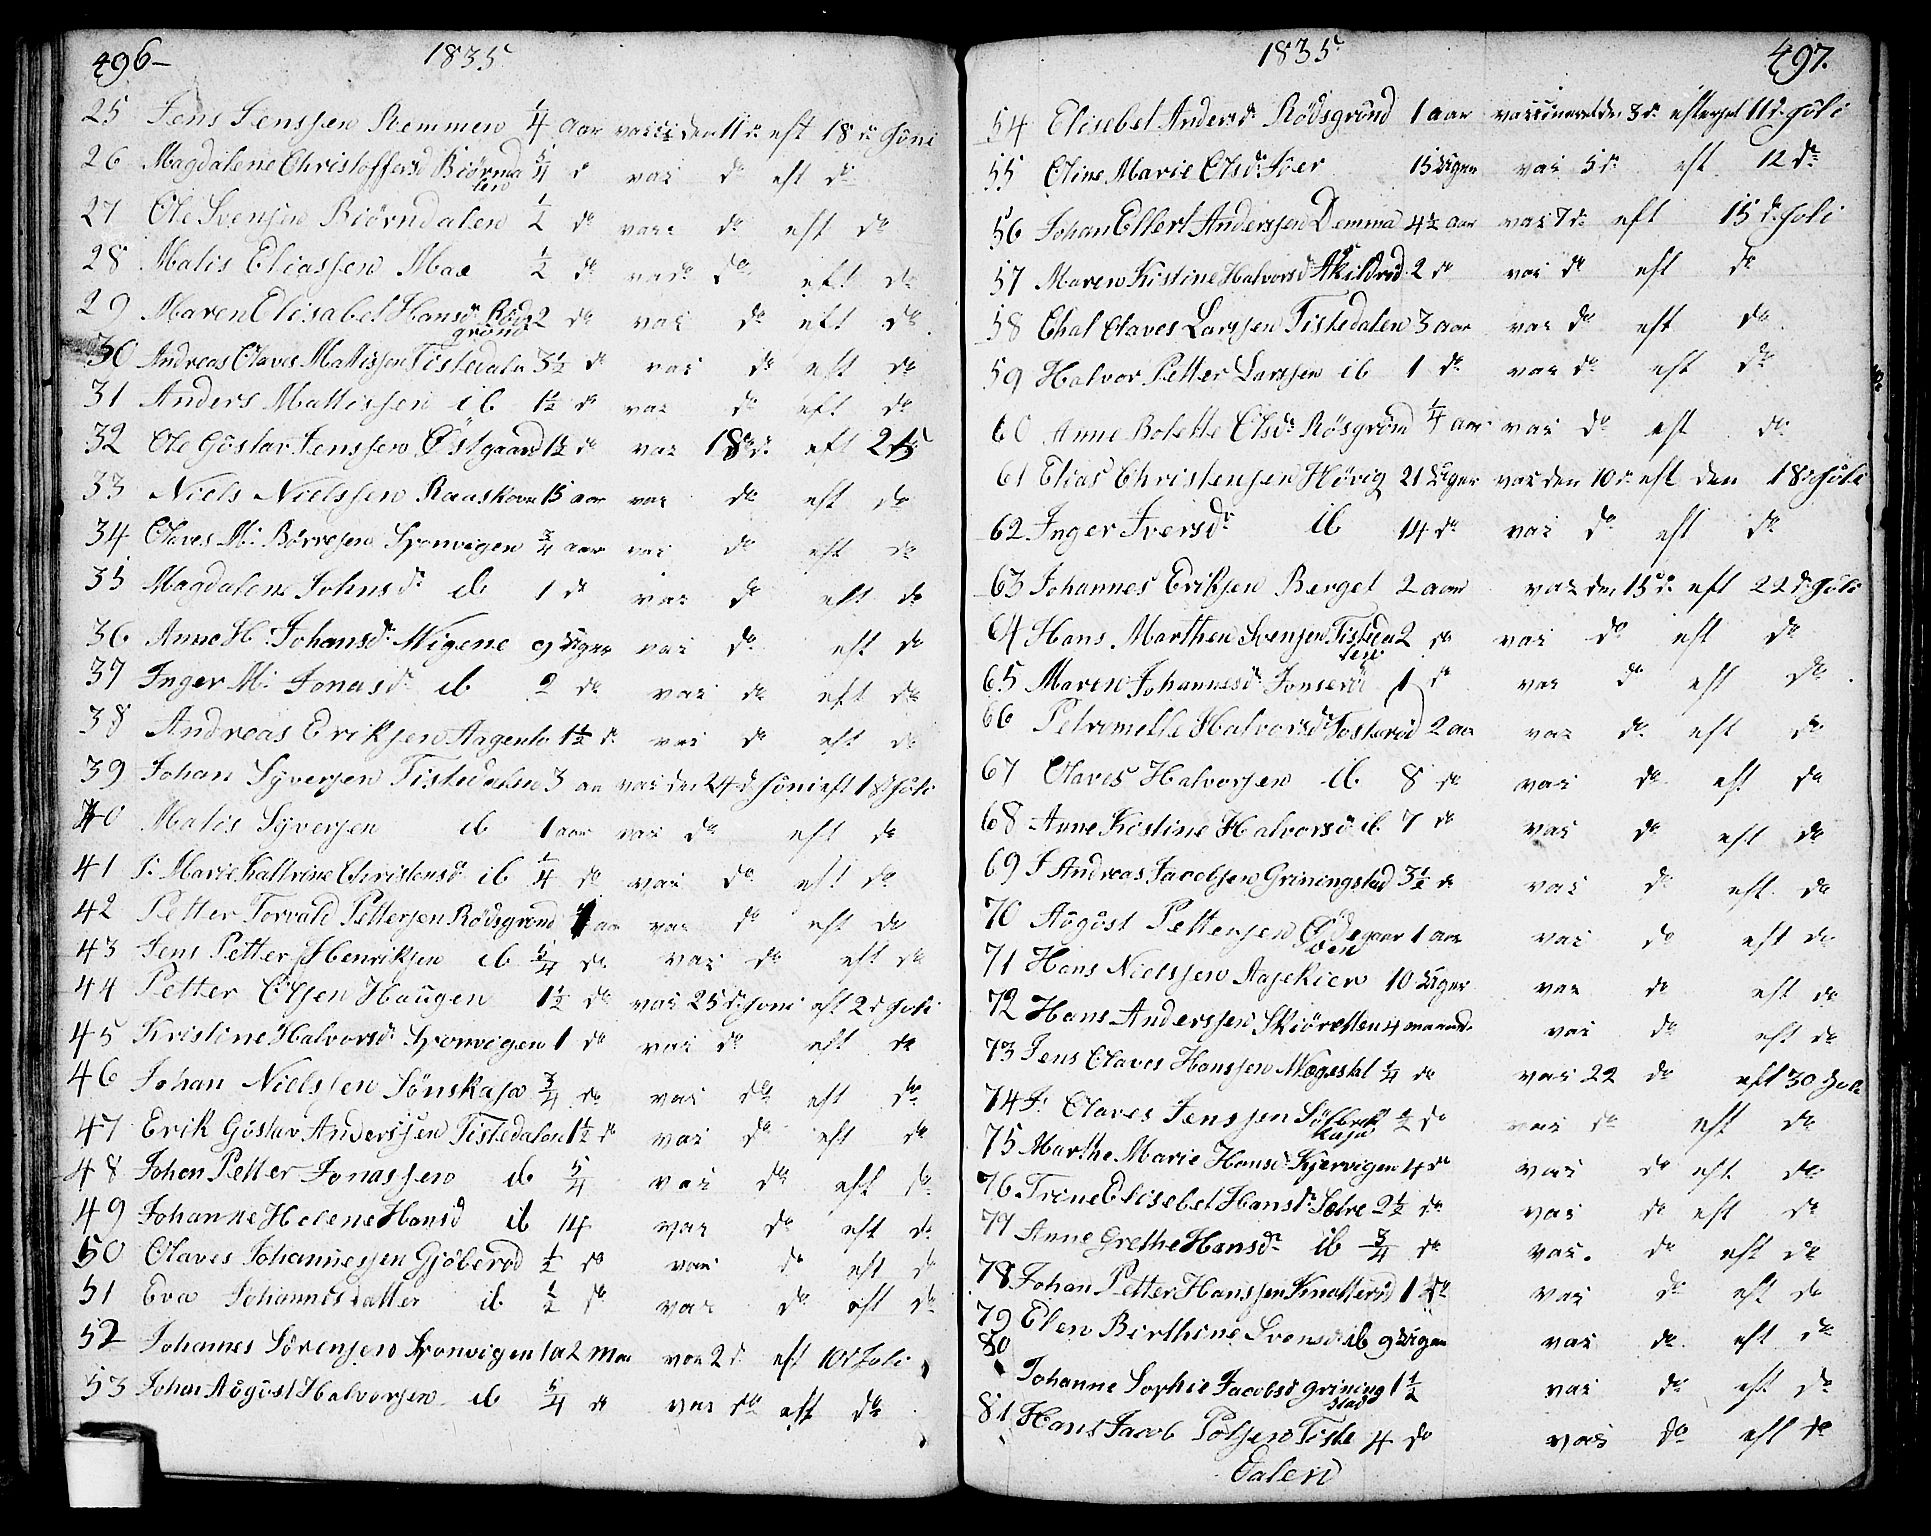 496-
1835
25 Jens Jenssen Remmen 1/4 aar vacci den 11 d: eft 18 d: Juni
26 Magdalene Christoffersd Biørnda 5/4 d vac d: eft d:
len
27 Ole Svensen Biørndalen 1/2 do vacc do eft do
28 Matis Eliassen Moe 1/2 do vac do eft do
29 Maren Elisabet Hansdr Røds 2 do vac do eft do
grund
30 Andreas Olaves Mattissen Tistedaln 3 1/2 do vac do eft do
31 Anders Mattissen ib 1 1/2 do vac do eft do
32 Ole Gustav Jenssen Østgaard 1 1/2 do vac 18 d: eft 25
33 Niels Nielssen Rauskovn 15 aar vac do eft do
34 Olaves M: Børresen Sponvigen 3/4 aar vac do eft do
35 Magdalene Johnsdr ib 1 do vac do eft do
36 Anne H: Johansdr Wigene 9 uger vac do eft do
37 Inger M: Jonasdr ib 2 do vac do eft do
38 Andreas Eriksen Aagento 1 1/2 do vac do eft do
39 Johan Syversen Tistedalen 3 aa vac den 24 d Juni eft 1 d Juli
40 Matis Syversen ib 1 aar vac do eft do
41 J: Marie Kattrine Christensd ib 1/4 do vac do eft do
42 Petter Torvald Pettersen Rødsgrund 1 aar vac do eft do
43 Jens Petter Henriksen ib 5/4 do vac do eft do
44 Petter Olsen Haugen 1 1/2 do vac 25 d: Juni eft 2 d Juli
45 Kristine Halvorsd: Sponvigen 1 do vac do eft do
46 Johan Nielssen Sønskasa 3/4 do vac do eft do
47 Erik Gustav Anderssen Tistedalen 1 1/2 do vac do eft do
48 Johan Petter Jonassen ib 5/4 vac do eft do
49 Johanne Helene Hansd ib 14 vac do eft do
50 Olaves Johannessen Gjøberød 1/2 do vac do eft do
51 Eva Johannesdatter ib 1/2 do vac do eft do
52 Johannes Sørensen Sponvigen 1 a 2 Maa vac 2 d: eft 10 d Juli
53 Johan August Halvorsen ib 5/4 do vac do eft do
1835
497.
54 Elisebet Andersdr Rødsgrund 1 aar vaccineret den 3 d: efterset 11 d: Juli
55 Oline Marie Olsdr Foer 15 Uger vac 5 d: eft 12 do
56 Johan Ellert Anderssen Demma 4 1/2 aar vac 7 d: eft 15 d: Juli
57 Maren Kistine Halvorsd Akildrød 2 do vac do eft do
58 Chal Olaves Larssen Tistedalen 3 aar vac do eft do
59 Halvor Petter Larssen ib 1 do vac do eft do
60 Anne Bolette Olsdr Røsgrund 1/4 aar vac do eft do
61 Elias Christensen Høvig 21 Uger vac den 10 d: eft den 18 d: Juli
62 Inger Iversdr ib 14 do vac do eft do
63 Johannes Eriksen Berget 2 aar vac den 15 d: eft 22 d: Juli
64 Hans Marthen Svensen Tisteda 2 do vac do eft do
len
65 Maren Johannesdr Jonserød 1 do vac do eft do
66 Petronelle Halvorsdr Tosterød 2 aa vac do eft do
67 Olaves Halvorsen ib 8 do vac do eft do
68 Anne Kistine Halvorsd ib 7 do vac do eft do
69 J Andreas Jacobsen Griningstad 3 1/2 do vac do eft do
70 August Pettersen Ødegaar 1 aar vac do eft do
den
71 Hans Nielssen Aasekier 10 Uger vac do eft do
72 Hans Anderssen Skiøretten 4 maand: vac do eft do
73 Jens Olaves Hanssen Wægestol 1/4 do vac 22 do eft 30 Juli
74 J: Olaves Jenssen Sølbrek 1/2 do vac do eft do
kasa
75 Marthe Marie Hansd: Kjervigen 4 do vac do eft do
76 Trine Elisebet Hansdr Sætre 2 1/2 do vac do eft do
77 Anne Grethe Hansdr ib 3/4 do vac. do eft do
78 Johan Petter Hanssen Knatterød 1 do vac do eft do
79 Elen Birthine Svensd: ib 9 Uger vac do eft do
80 Johanne Sophie Jacobsd Grining 1 1/2 vac do eft do
stad
81 Hans Jacob Polsen Tiste 4 do vac do eft do
Dalen